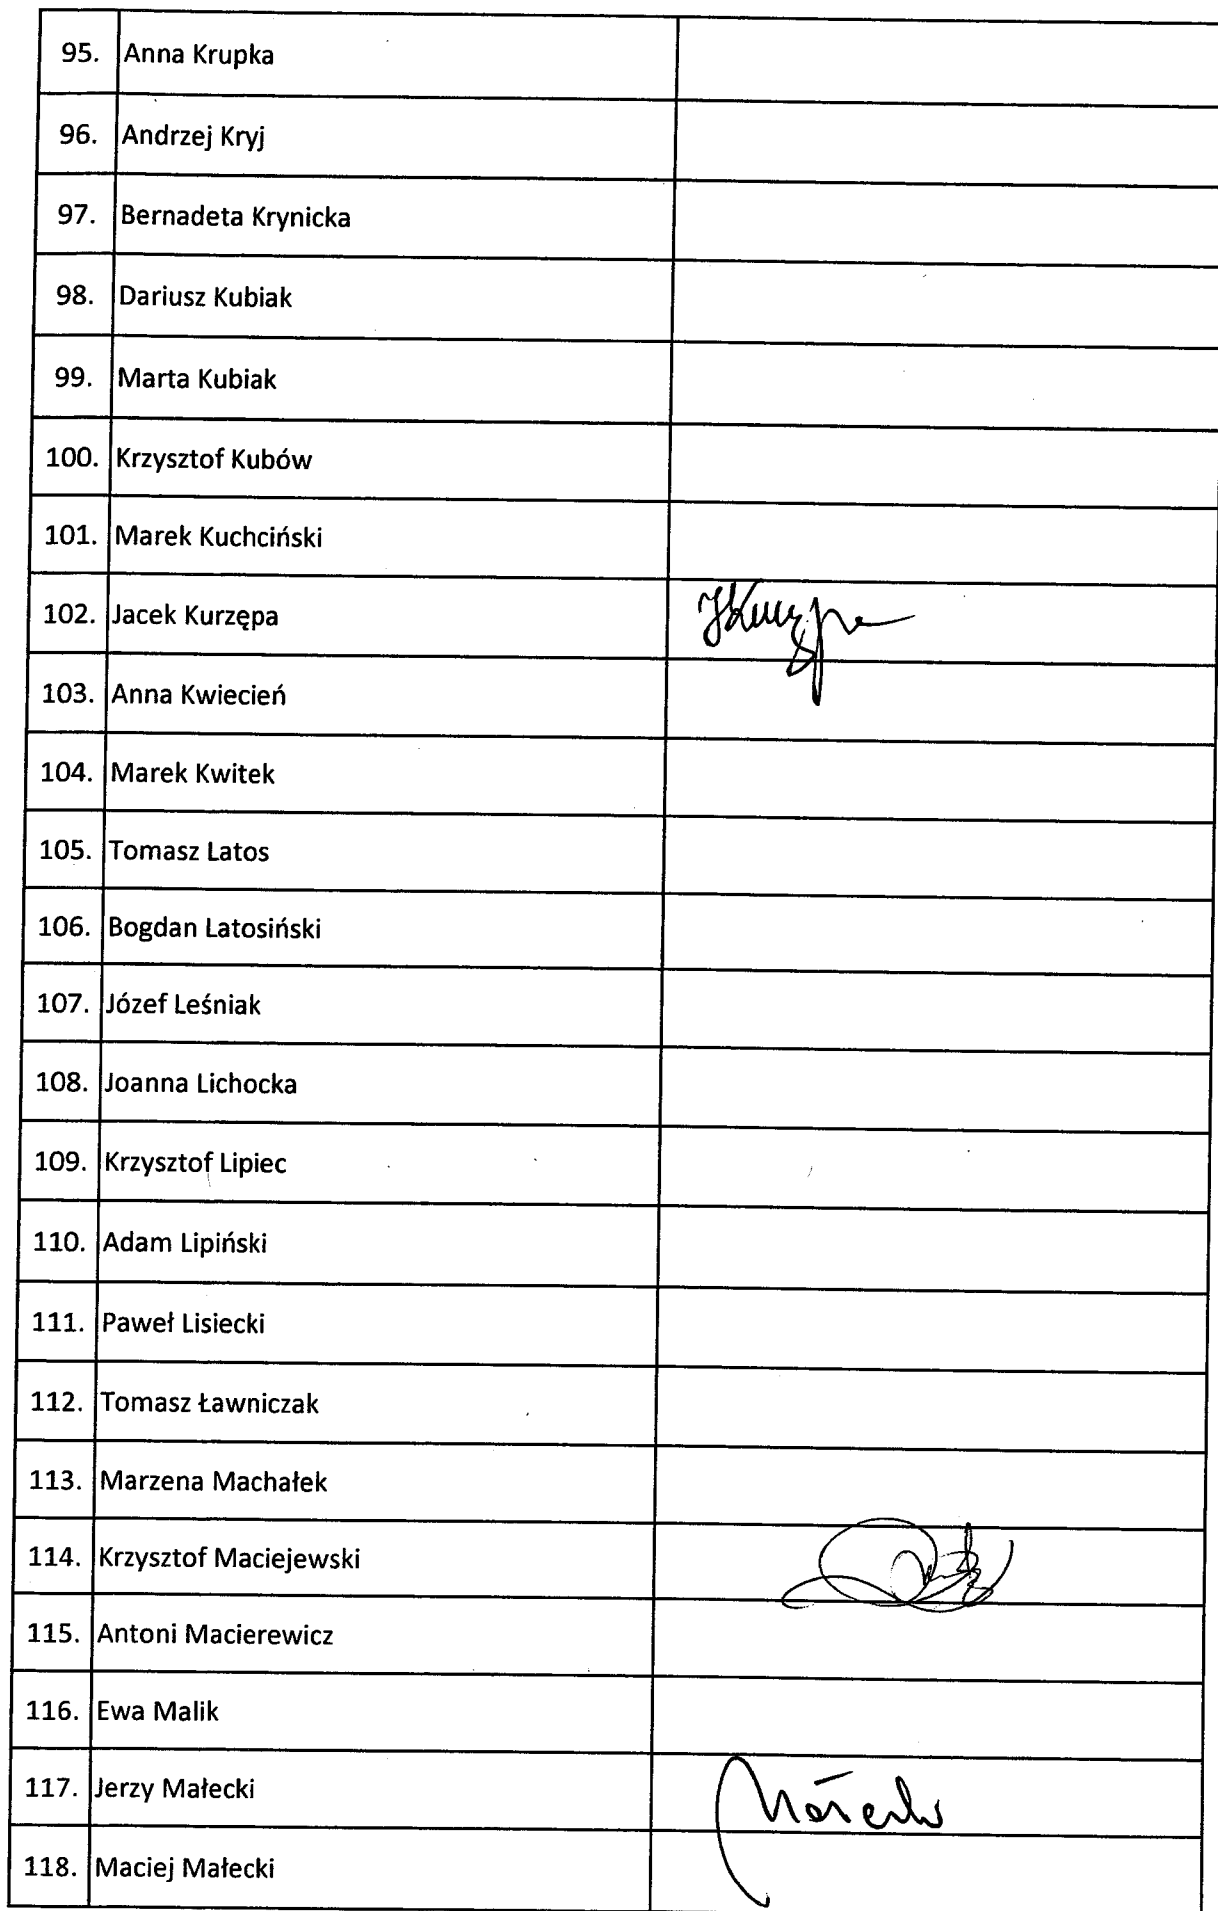 95. Anna Krupka
96. Andrzej Kryj
97. Bernadeta Krynicka
98. Dariusz Kubiak
99. Marta Kubiak
100. Krzysztof Kubów
101. Marek Kuchciński
102. Jacek Kurzępa JKurzępa
103. Anna Kwiecień
104. Marek Kwitek
105. Tomasz Latos
106. Bogdan Latosiński
107. Józef Leśniak
108. Joanna Lichocka
109. Krzysztof Lipiec
110. Adam Lipiński
111. Paweł Lisiecki
112. Tomasz Ławniczak
113. Marzena Machałek
114. Krzysztof Maciejewski
115. Antoni Macierewicz
116. Ewa Malik
117. Jerzy Małecki Małecki
118. Maciej Małecki